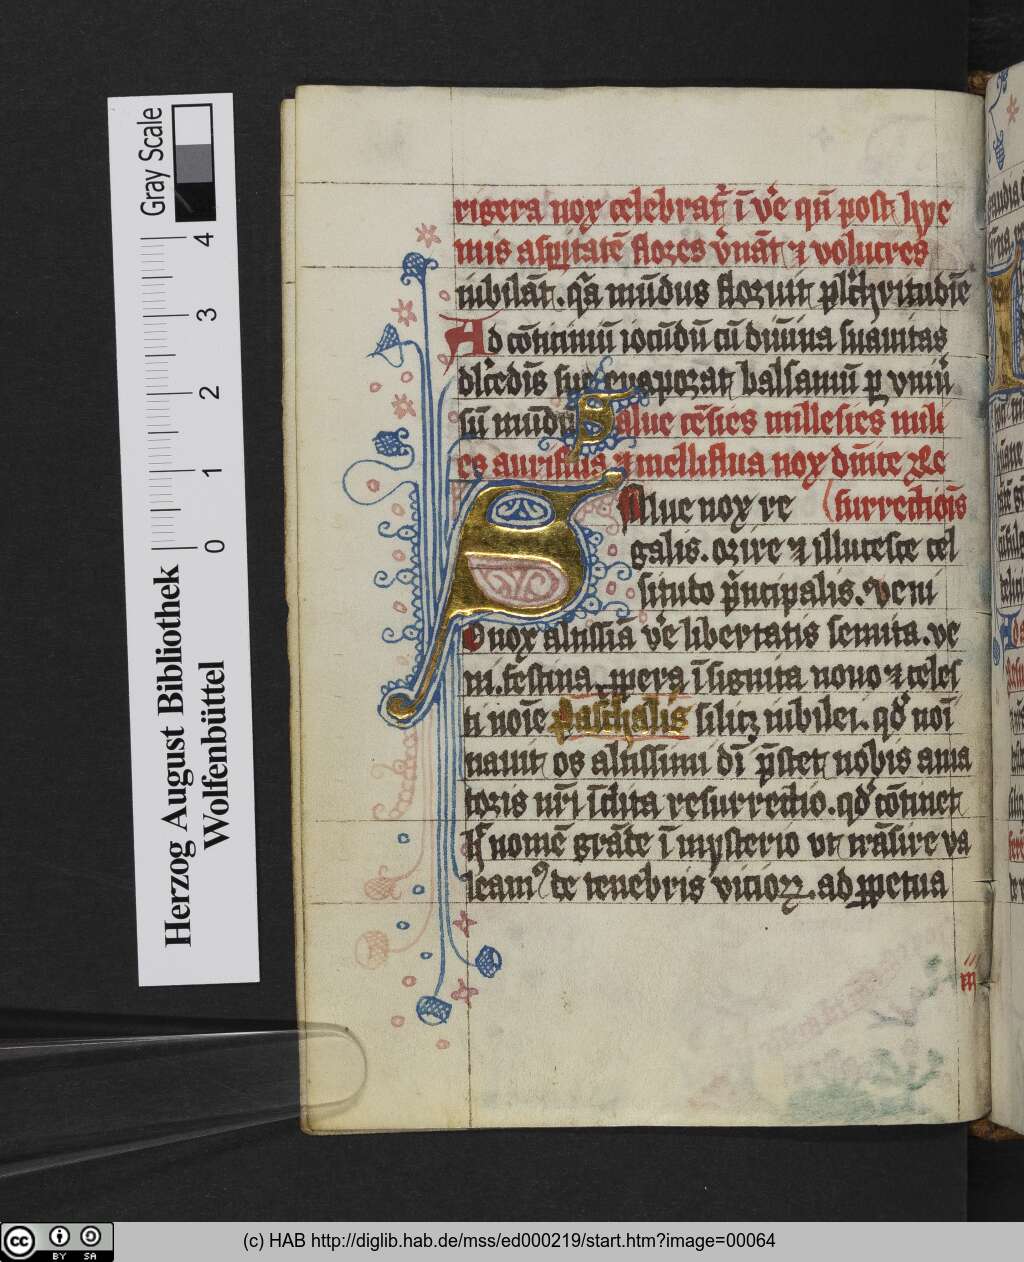 Gray Scale
4
3
2
1
0
Herzog August Bibliothek
Wolfenbüttel
rigera nox celebrat᷑ ī ve̓ qn̄ post hye
mis asp̄itatē flores v̓nāt ⁊ volucres
iubilāt. q̄a mūdus floruit pulchritudīe
Ad cōticiniū iocūdū cū diuīna suauitas
suū euaporat balsamū
sū mūdū Salue cēsies millesies mili
es auriflua ⁊ melliflua nox dn̄ice Re
Salue nox re surrectiōis
galis. orire ⁊ illucesce cel
situdo p̄ncipalis. veni
O nox altissīa ve̓ libertatis semita. ve
ni. festina ꝓpera īsignita nouo ⁊ celes
ti noīe Paschalis silicꝫ iubilei. qd̓ noī
nauit os altissimi dī p̄stet nobis ama
toris nr̄i īclita resurrectio. qd̓ cōtinet
nomē grāte ī mysterio vt trāsire va
leamꝰ de tenebris vicioꝝ. ad ꝑpetua
(c) HAB http://diglib.hab.de/mss/ed000219/start.htm?image=00064
BY SA